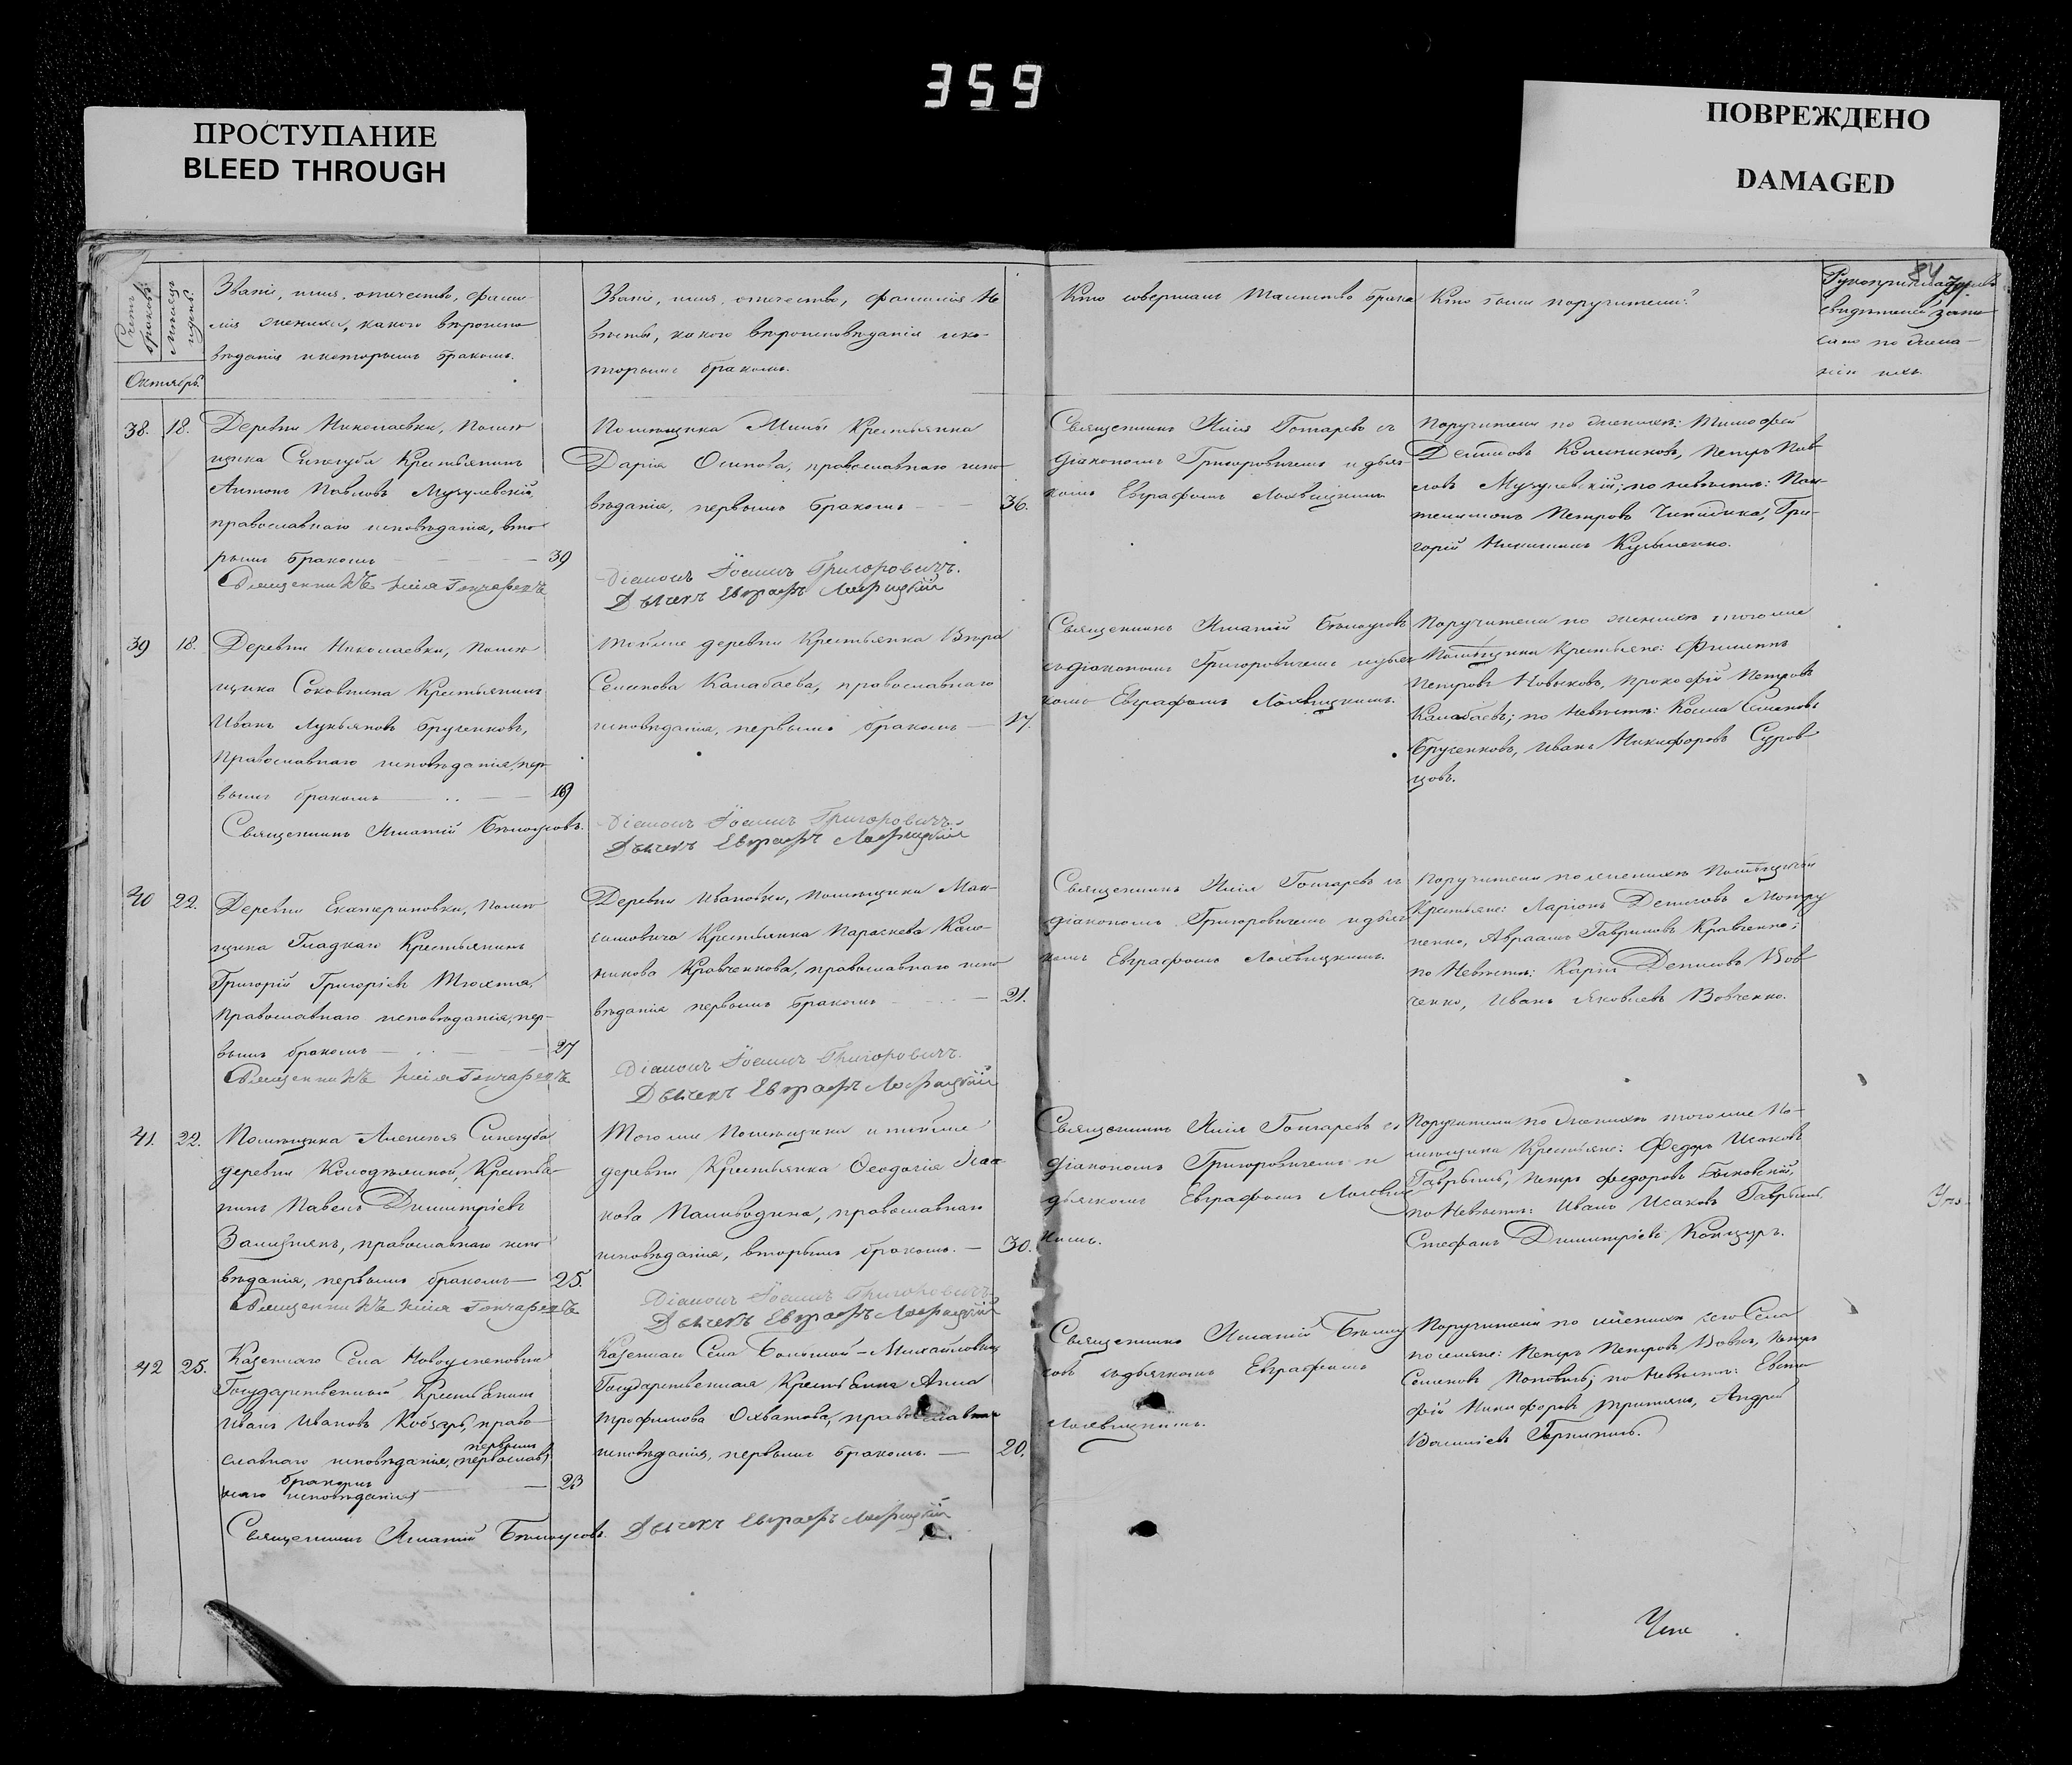 359
ПРОСТУПАНИЕ
BLEED THROUGH
ПОВРЕЖДЕНО
DAMAGED
84
Счетъ браковъ.
Мѣсяцъ и день.
Октябрь.
Званіе, имя, отчество, фами-
лія жениха, какого вѣроиспо-
вѣданія и которымъ бракомъ.
Званіе, имя, отчество, фамилія Не
вѣсты, какого вѣроисповѣданія и ко-
торымъ бракомъ.
Кто совершалъ таинство брака
Кто были поручители?
свидѣтелей запи
сано по жела-
нію ихъ.
38.
18.
Деревни Николаевки, Помѣ
щика Синегуба Крестьянинъ
Антонъ Павловъ Музулевскій,
православнаго исповѣданія, вто
рымъ бракомъ
39
Священникъ Илія Гончаревъ
Помѣщика Милы Крестьянка
Дарія Осипова, православнаго испо
вѣданія, первымъ бракомъ
36.
Діаконъ Іоаннъ Григоровичъ.
Дьячекъ Евграфъ Лохвицкій
Священникъ Илія Гончаревъ съ
діакономъ Григоровичемъ и дьяч
комъ Евграфомъ Лохвицкимъ
Поручители по женихѣ: Тимофей
Демидовъ Колесниковъ, Петръ Пав
ловъ Музулевскій; по невѣстѣ: Пан
телимонъ Петровъ Чикилика, Гри-
горій Никитинъ Кузьменко.
39
18.
Деревни Николаевки, Помѣ
щика Соковнина Крестьянинъ
Иванъ Лукьяновъ Брученковъ,
Православнаго исповѣданія, пер
вымъ бракомъ
19
Священникъ Игнатій Бѣлоусовъ.
Тойже деревни Крестьянка Вѣра
Семенова Калабаева, православнаго
исповѣданія, первымъ бракомъ
17.
Діаконъ Іоаннъ Григоровичъ
Дьячекъ Евграфъ Лохвицкій
Священникъ Игнатій Бѣлоусовъ
съ діакономъ Григоровичемъ и дьяч
комъ Евграфомъ Лохвицкимъ.
Поручители по женихѣ тогоже
Помѣщика Крестьяне: Филиппъ
Петровъ Новыковъ, Прокофій Петровъ
Калабаевъ; по Невѣстѣ: Косма Семеновъ
Брученковъ, Иванъ Никифоровъ Суров
цовъ.
40
22.
Деревни Екатериновки, Помѣ
щика Гладкаго Крестьянинъ
Григорій Григоріевъ Тюхта,
Православнаго исповѣданія, пер-
вымъ бракомъ
27
Священникъ Илія Гончаревъ
Деревни Ивановки, помѣщика Мак-
симовича Крестьянка Параскева Кало-
никова Кравченкова, православнаго испо
вѣданія первымъ бракомъ
21.
Діаконъ Іоаннъ Григоровичъ.
Дьячекъ Евграфъ Лохвицкій
Священникъ Илія Гончаревъ съ
діакономъ Григоровичемъ и дьяч
комъ Евграфомъ Лохвицкимъ.
Поручители по женихѣ Помѣщичьи
Крестьяне: Ларіонъ Денисовъ
ненко, Авраамъ Гавриловъ Кравченко;
по Невѣстѣ: Карпъ Денисовъ Вов
ченко, Иванъ Яковлевъ Вовченко.
41.
22.
Помѣщика Алексѣя Синегуба
деревни Колодѣзной, Крестья-
нинъ Павелъ Димитріевъ
Зализнякъ, православнаго испо
вѣданія, первымъ бракомъ
25.
Священникъ Илія Гончаревъ
Тогоже Помѣщика и тойже
деревни Крестьянка Ѳеодосія Исаа
кова Паливодина, православнаго
исповѣданія, вторымъ бракомъ.
30.
Діаконъ Іоаннъ Григоровичъ
Дьячекъ Евграфъ Лохвицкій
Священникъ Илія Гончаревъ съ
діакономъ Григоровичемъ и
дьячкомъ Евграфомъ Лохвиц
кимъ.
Поручители по женихѣ тогоже По-
мѣщика Крестьяне: Федоръ Исаковъ
Гаврышъ, Петръ Федоровъ Быковскій,
по Невѣстѣ: Иванъ Исаковъ Гаврышъ
Стефанъ Димитріевъ Канцуръ.
42
25.
Казеннаго Села Новоуспеновки
Государственный Крестьянинъ
Иванъ Ивановъ Кобзарь, право
славнаго исповѣданія, первымъ
бракомъ
23
Священникъ Игнатій Бѣлоусовъ.
Казеннаго Села Большой-Михайловки
Государственная Крестьянка Анна
Трофимова Охватова, православнаго
исповѣданія, первымъ бракомъ.
20.
Дьячекъ Евграфъ Лохвицкій
Священникъ Игнатій Бѣлоу
совъ съ дьячкомъ Евграфомъ
Лохвицкимъ.
Поручители по женихѣ сего Села
поселяне: Петръ Петровъ Вовкъ, Петръ
Семеновъ Поповъ; по Невѣстѣ: Евста
фій Никифоровъ Тритякъ, Андрей